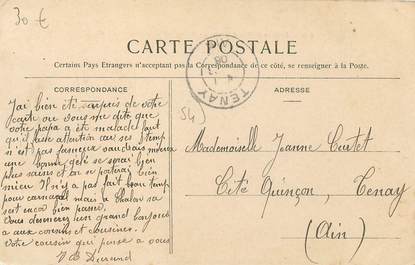 30 €
CARTE POSTALE
Certains Pays Etrangers n'acceptant pas la Correspondance de ce côté, se renseigner à la Poste.
CORRESPONDANCE
ADRESSE
TENAY
08
54
J'ai bien été surpris de votre
carte ou vous me dite que
votre papa a été malade faut
qu'il fasse attention car ses temp
si est pas fameux vaudrais mieux
une bonne gelé se serai bien
plus saint et on se porterai bien
mieu Il n'y a pas fait bon temp
pour carnaval mais a Chalon sa
sait encor bien passé
Vous donnerez un grand bonjour
a aux cousins et cousines
Votre cousin qui pense a vous
Durand
Mademoiselle Jeanne Curtet
Cité Quinson, Tenay
(Ain)